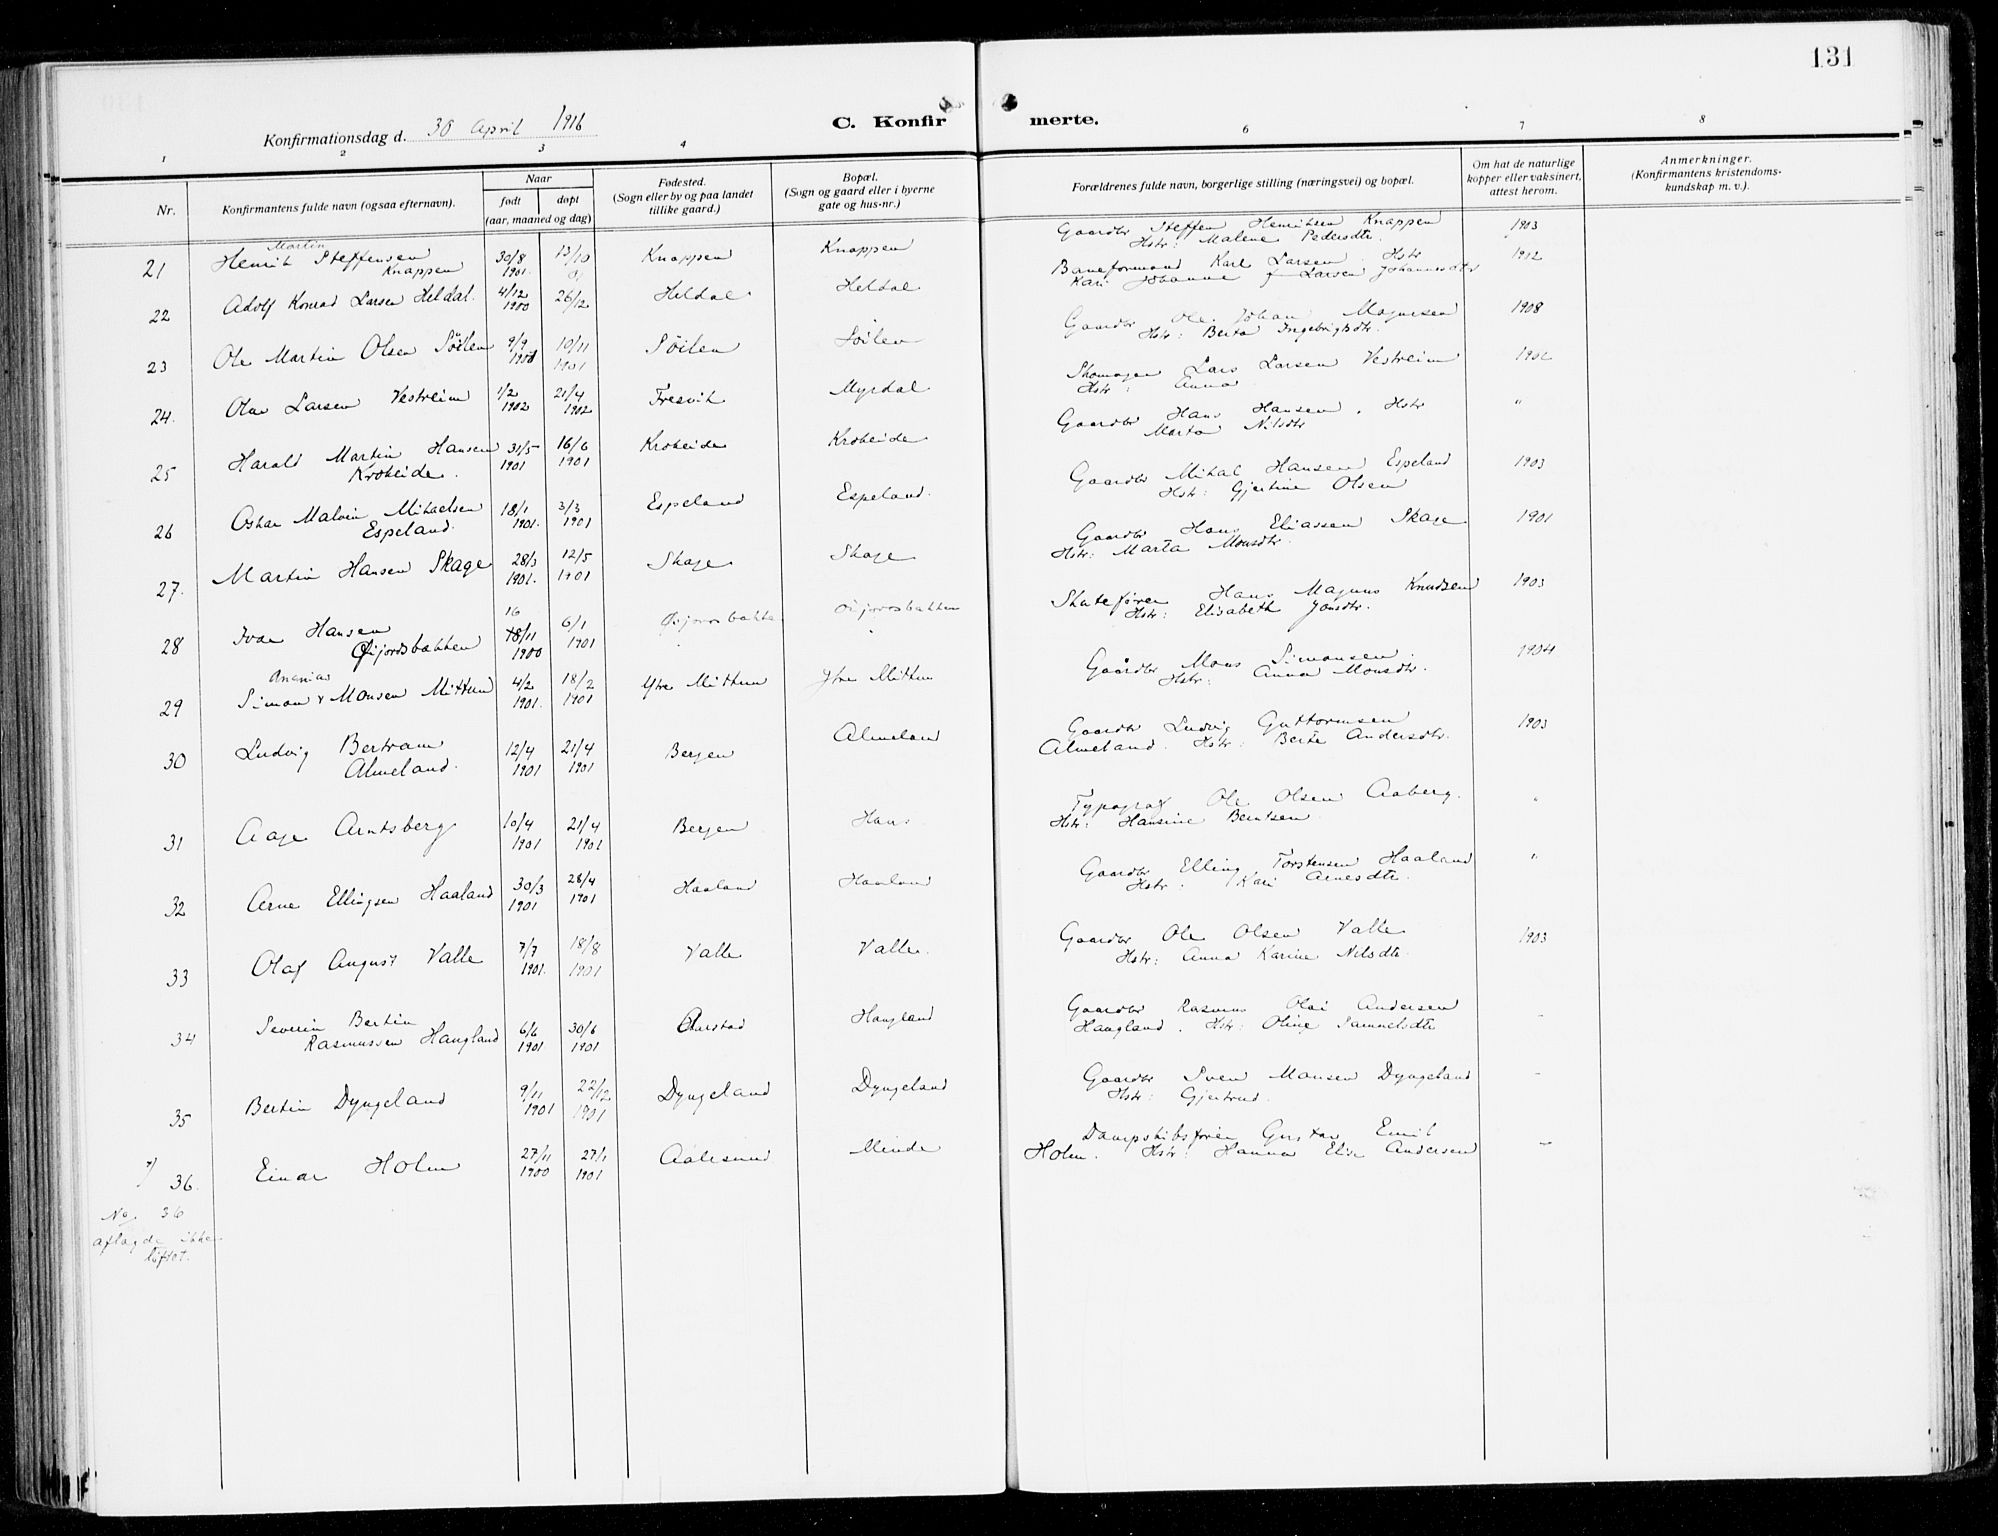 131
Konfirmationsdag d. 30 April 1916
C. Konfirmerte.
1 2 3 4 6 7 8
Nr.
Konfirmantens fulde navn (ogsaa efternavn).
Naar
født
døpt
(aar, maaned og dag)
Fødested.
(Sogn eller by og paa landet
tillike gaard.)
Bopæl.
(Sogn og gaard eller i byerne
gate og hus-nr.)
Forældrenes fulde navn, borgerlige stilling (næringsvei) og bopæl.
Om hat de naturlige
kopper eller vaksinert,
attest herom.
Anmerkninger.
(Konfirmantens kristendoms-
kundskap m. v.).
21 Henrik Martin Steffensen Knappen 30/8 1901. 13/10 01 Knappen Knappen Gaardbr Steffen Henriksen Knappen Hstr: Malene Pedersdtr. 1903
22 Adolf Konrad Larsen Heldal. 4/12 1900 26/12 Heldal Heldal Baneformand Karl Larsen. Hstr Kari Johanne f. Larsen Johannesdtr 1912
23 Ole Martin Olsen Söilen 9/9 1901 10/11 1901 Söilen Söilen Gaardbr Ole Johan Magnesen Hstr: Berta Ingebrigtsdtr. 1908
24. Olav Larsen Vestreim 1/2 1902 21/4 1902 Fresvik Myrdal Skomager Lars Larsen Vestreim Hstr: Anna 1902
25 Harald Martin Hansen Krokeide. 31/5 1901 16/6 1901 Krokeide Krokeide Gaardbr Hans Hansen. Hstr Marta Nilsdtr "
26 Oskar Malvin Mikaelsen Espeland. 18/1 1901. 3/3 1901 Espeland Espeland. Gaardbr Mikal Hansen Espeland Hstr: Gjertine Olsen 1903
27. Martin Hansen Skage 28/3 1901. 12/5 1901 Skage Skage Gaardbr Hans Eliassen Skage Hstr: Marta Monsdtr. 1901
28 Ivar Hansen Øijordsbakken 16 18/11 1900 6/1 1901 Øijordsbakke Øijordsbakken Skatefører Hans Magnus Knudsen Hstr: Elisabeth Jonsdtr. 1903
29 Simon Ananias Monsen Mittun 4/2 1901. 18/2 1901 Ytre Mittun Ytre Mittun Gaardbr Mons Simonsen. Hstr: Anna Monsdtr. 1904
30 Ludvig Bertram Almeland. 12/4 1901 21/4 1901 Bergen Almeland Gaardbr Ludvig Guttormsen Almeland. Hstr: Berta Andersdtr. 1903
31 Aage Arntsberg 10/4 1901 21/4 1901 Bergen Typograf Ole Olsen Aaberg. Hstr: Hansine Berntsen "
32 Arne Ellingsen Haaland 30/3 1901 28/4 1901 Haaland Haaland Gaardbr Elling Torstensen Haaland Hstr: Kari Arnesdtr. "
33 Olaf August Valle 7/7 1901. 18/8 1901 Valle Valle. Gaardbr Ole Olsen Valle Hstr: Anna Karine Nilsdtr. 1903
34 Severin Bertin Rasmussen Haugland 6/6 1901 30/6 1901 Haugland Gaardbr Rasmus Olai Andersen Haugland. Hstr: Oline Samuelsdtr –
35 Bertin Dyngeland 9/11 1901 22/12. 1901 Dyngeland Dyngeland Gaardbr Sven Monsen Dyngeland Hstr: Gjertrud. –
36. Einar Holm 27/11 1900 27/1 1901 Aalesund Minde Dampskibsfører Gustav Emil Holm. Hstr: Hanna Elise Andersen –
No. 36
aflagde ikke
löftet.